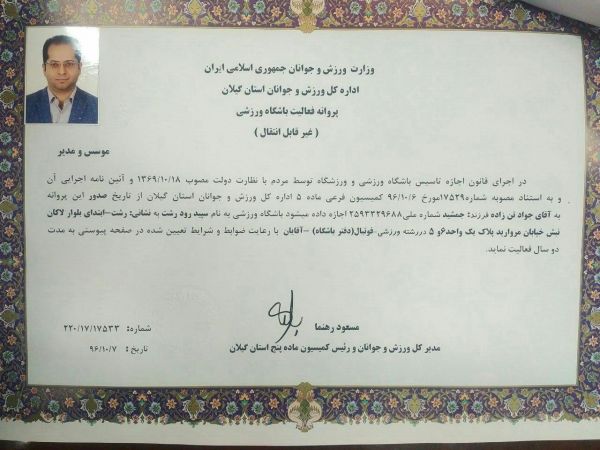 وزارت ورزش و جوانان جمهوری اسلامی ایران
اداره کل ورزش و جوانان استان گیلان
پروانه فعالیت باشگاه ورزشی
( غیر قابل انتقال )
موسس و مدیر
در اجرای قانون اجازه تاسیس باشگاه ورزشی و ورزشگاه توسط مردم با نظارت دولت مصوب ۱۳۶۹/۱۰/۱۸ و آئین نامه اجرایی آن
و به استناد مصوبه شماره۱۷۵۲۹مورخ ۹۶/۱۰/۶ کمیسیون فرعی ماده ۵ اداره کل ورزش و جوانان استان گیلان از تاریخ صدور این پروانه
به آقای جواد تن زاده فرزند: جمشید شماره ملی۲۵۹۳۳۲۹۶۸۸ اجازه داده میشود باشگاه ورزشی به نام سپید رود رشت به نشانی: رشت-ابتدای بلوار لاکان
نبش خیابان مروارید پلاک یک واحد۶و ۵ دررشته ورزشی-فوتبال(دفتر باشگاه) -آقایان با رعایت ضوابط و شرایط تعیین شده در صفحه پیوستی به مدت
دو سال فعالیت نماید.
مسعود رهنما
شماره: ۲۲۰/۱۷/۱۷۵۳۳
مدیر کل ورزش و جوانان و رئیس کمیسیون ماده پنج استان گیلان
تاریخ : ۹۶/۱۰/۷